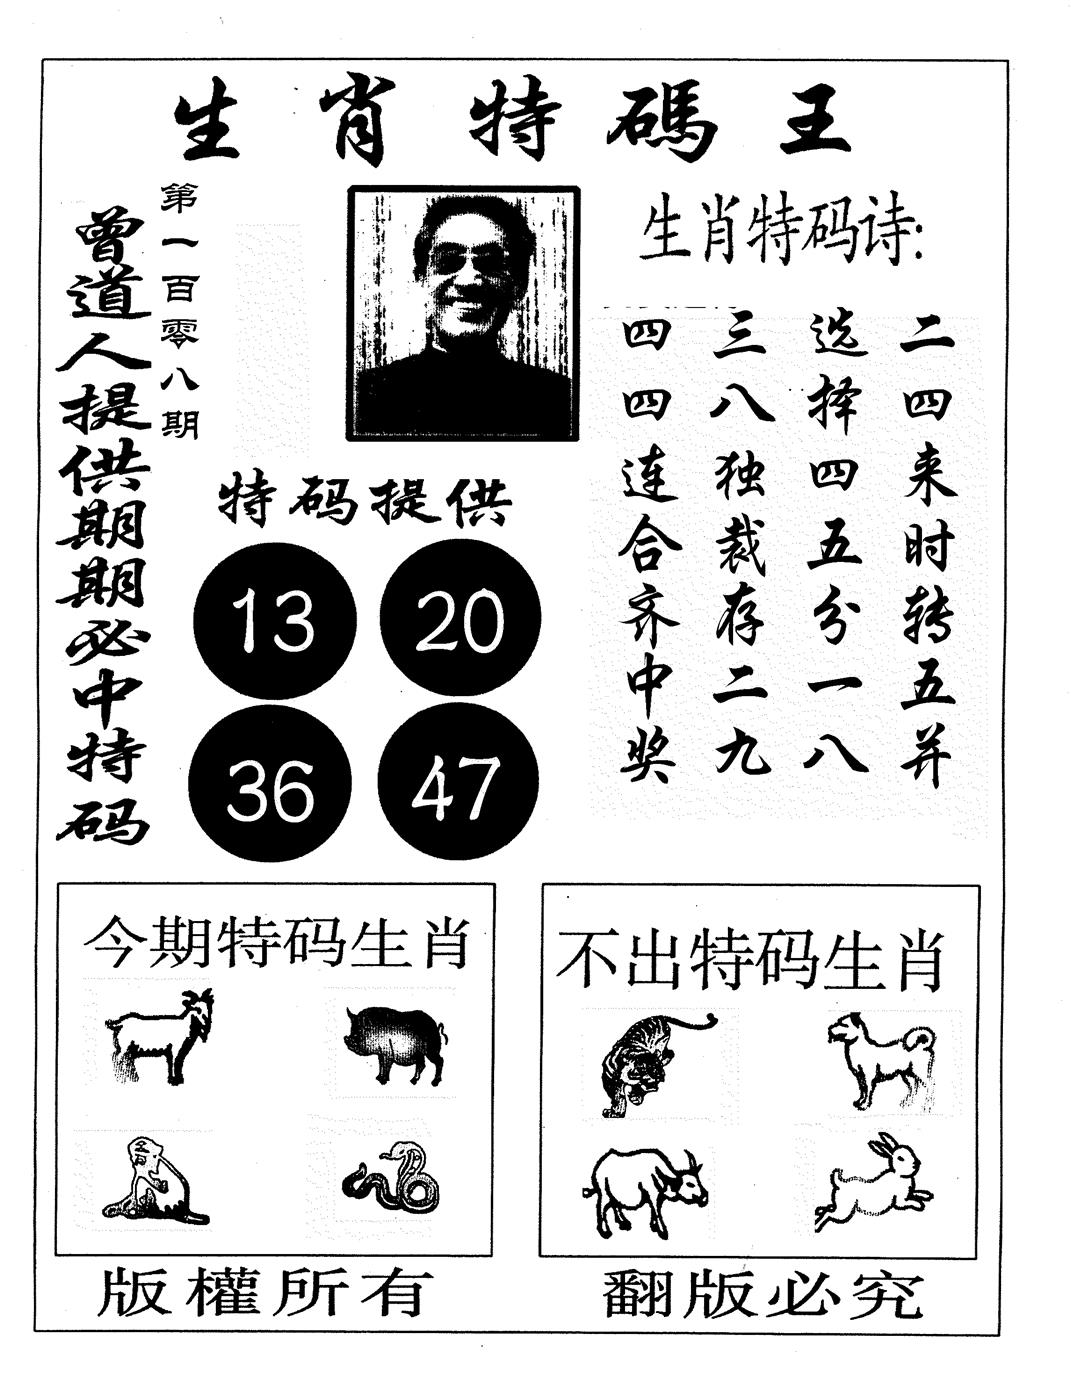 生肖特碼王
第一百零八期
曾道人提供期期必中特码
生肖特码诗:
二四来时转五并
选择四五分一八
三八独裁存二九
四四连合齐中奖
特码提供
13 20
36 47
今期特码生肖
不出特码生肖
版權所有
翻版必究